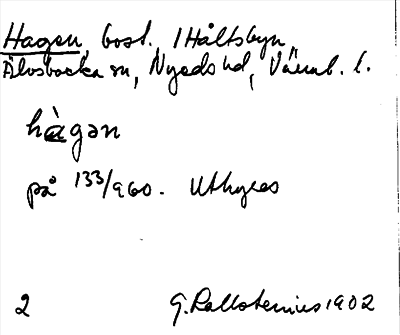 Hagen, bost. i Håltsbyn,
Älvsbacka sn, Nyeds hd, Värml. l.
hàgən
på 133/960. Uthyres
2 G. Kallstenius 1902